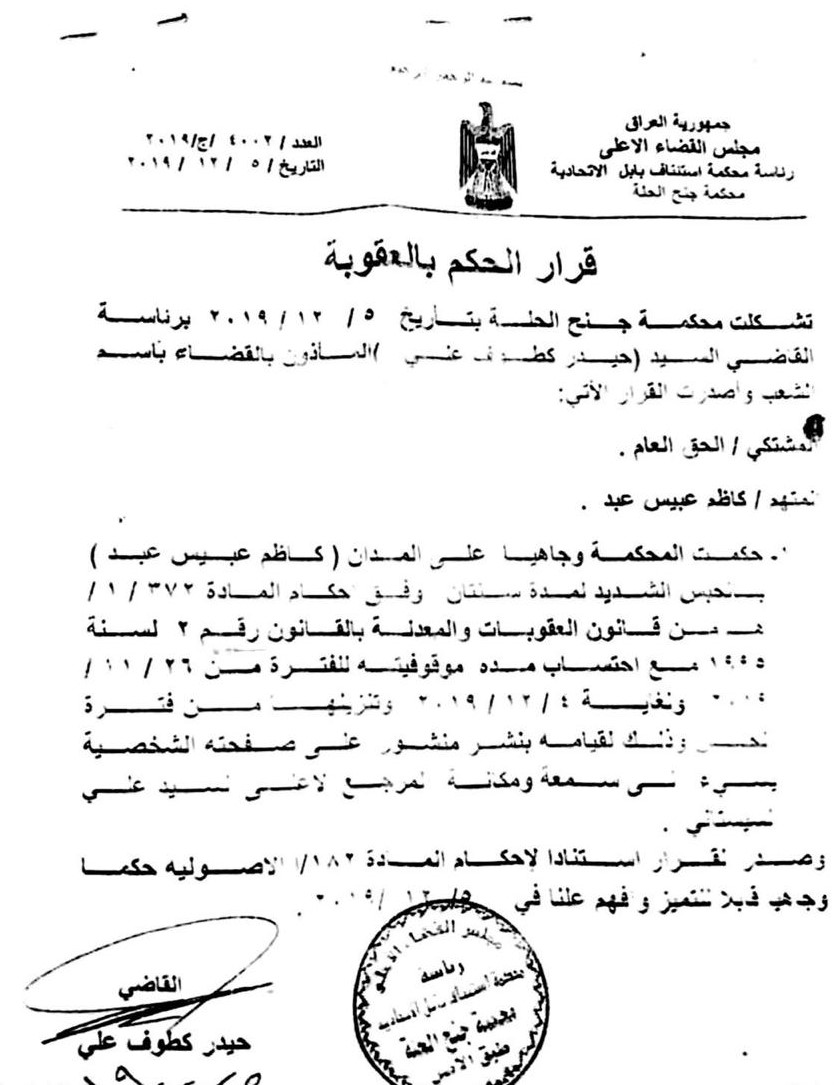 بسم الله الرحمن الرحيم
جمهورية العراق
مجلس القضاء الاعلى
رئاسة محكمة استئناف بابل الاتحادية
محكمة جنح الحلة
العدد / ٤٠٠٢ /ج/٢٠١٩
التاريخ / ٥ / ١٢ / ٢٠١٩
قرار الحكم بالعقوبة
تشكلت محكمة جنح الحلة بتاريخ ٥ / ١٢ / ٢٠١٩ برئاسة
القاضي السيد (حيدر كطوف علي )المأذون بالقضاء باسم
الشعب وأصدرت القرار الأتي:
المشتكي / الحق العام .
المتهم / كاظم عبيس عبد .
١. حكمت المحكمة وجاهيا على المدان ( كاظم عبيس عبد )
بالحبس الشديد لمدة سنتان وفق احكام المادة ٣٧٢ / ١ /
هـ من قانون العقوبات والمعدلة بالقانون رقم ٢ لسنة
١٩٩٥ مع احتساب مده موقوفيته للفترة من ٢٦ / ١١ /
٢٠١٩ ولغاية ٤ / ١٢ / ٢٠١٩ وتنزيلها من فترة
الحبس وذلك لقيامه بنشر منشور على صفحته الشخصية
يسيء الى سمعة ومكانة المرجع الاعلى السيد علي
السيستاني .
وصدر القرار استنادا لاحكام المادة ١٨٢/أ الاصوليه حكما
وجاهيا قابلا للتميز وافهم علنا في ٥ / ١٢ / ٢٠١٩ .
القاضي
حيدر كطوف علي
مجلس القضاء الاعلى
رئاسة
محكمة استئناف بابل الاتحادية
محكمة جنح الحلة
طبق الاصل